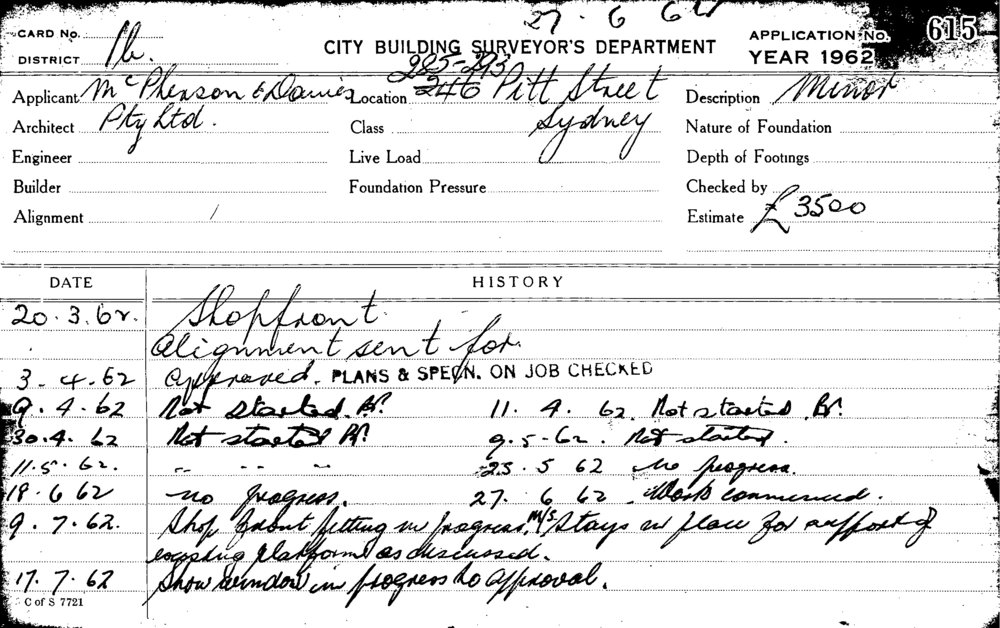 27 . 6 62
CARD No. CITY BUILDING SURVEYOR'S DEPARTMENT APPLICATION No. 615
DISTRICT 1b. YEAR 1962
285-293
Applicant McPherson & Davies Location 246 Pitt Street Description Minor
Architect Pty Ltd. Class Sydney Nature of Foundation
Engineer Live Load Depth of Footings
Builder Foundation Pressure Checked by
Alignment / Estimate £3500
DATE HISTORY
20.3.62. Shopfront.
Alignment sent for.
3.4.62 Approved. PLANS & SPECN. ON JOB CHECKED
9.4.62 Not started. 11. 4. 62. Not started.
30.4.62 Not started 9.5-62. Not started.
11.5.62. " " " 23.5 62 no progress.
18.6 62 no progress. 27. 6 62. Work commenced.
9.7.62. Shop front fitting in progress. M/S Stays in place for support of
existing platform as discussed.
17.7.62 Show window in progress to approval.
C of S 7721